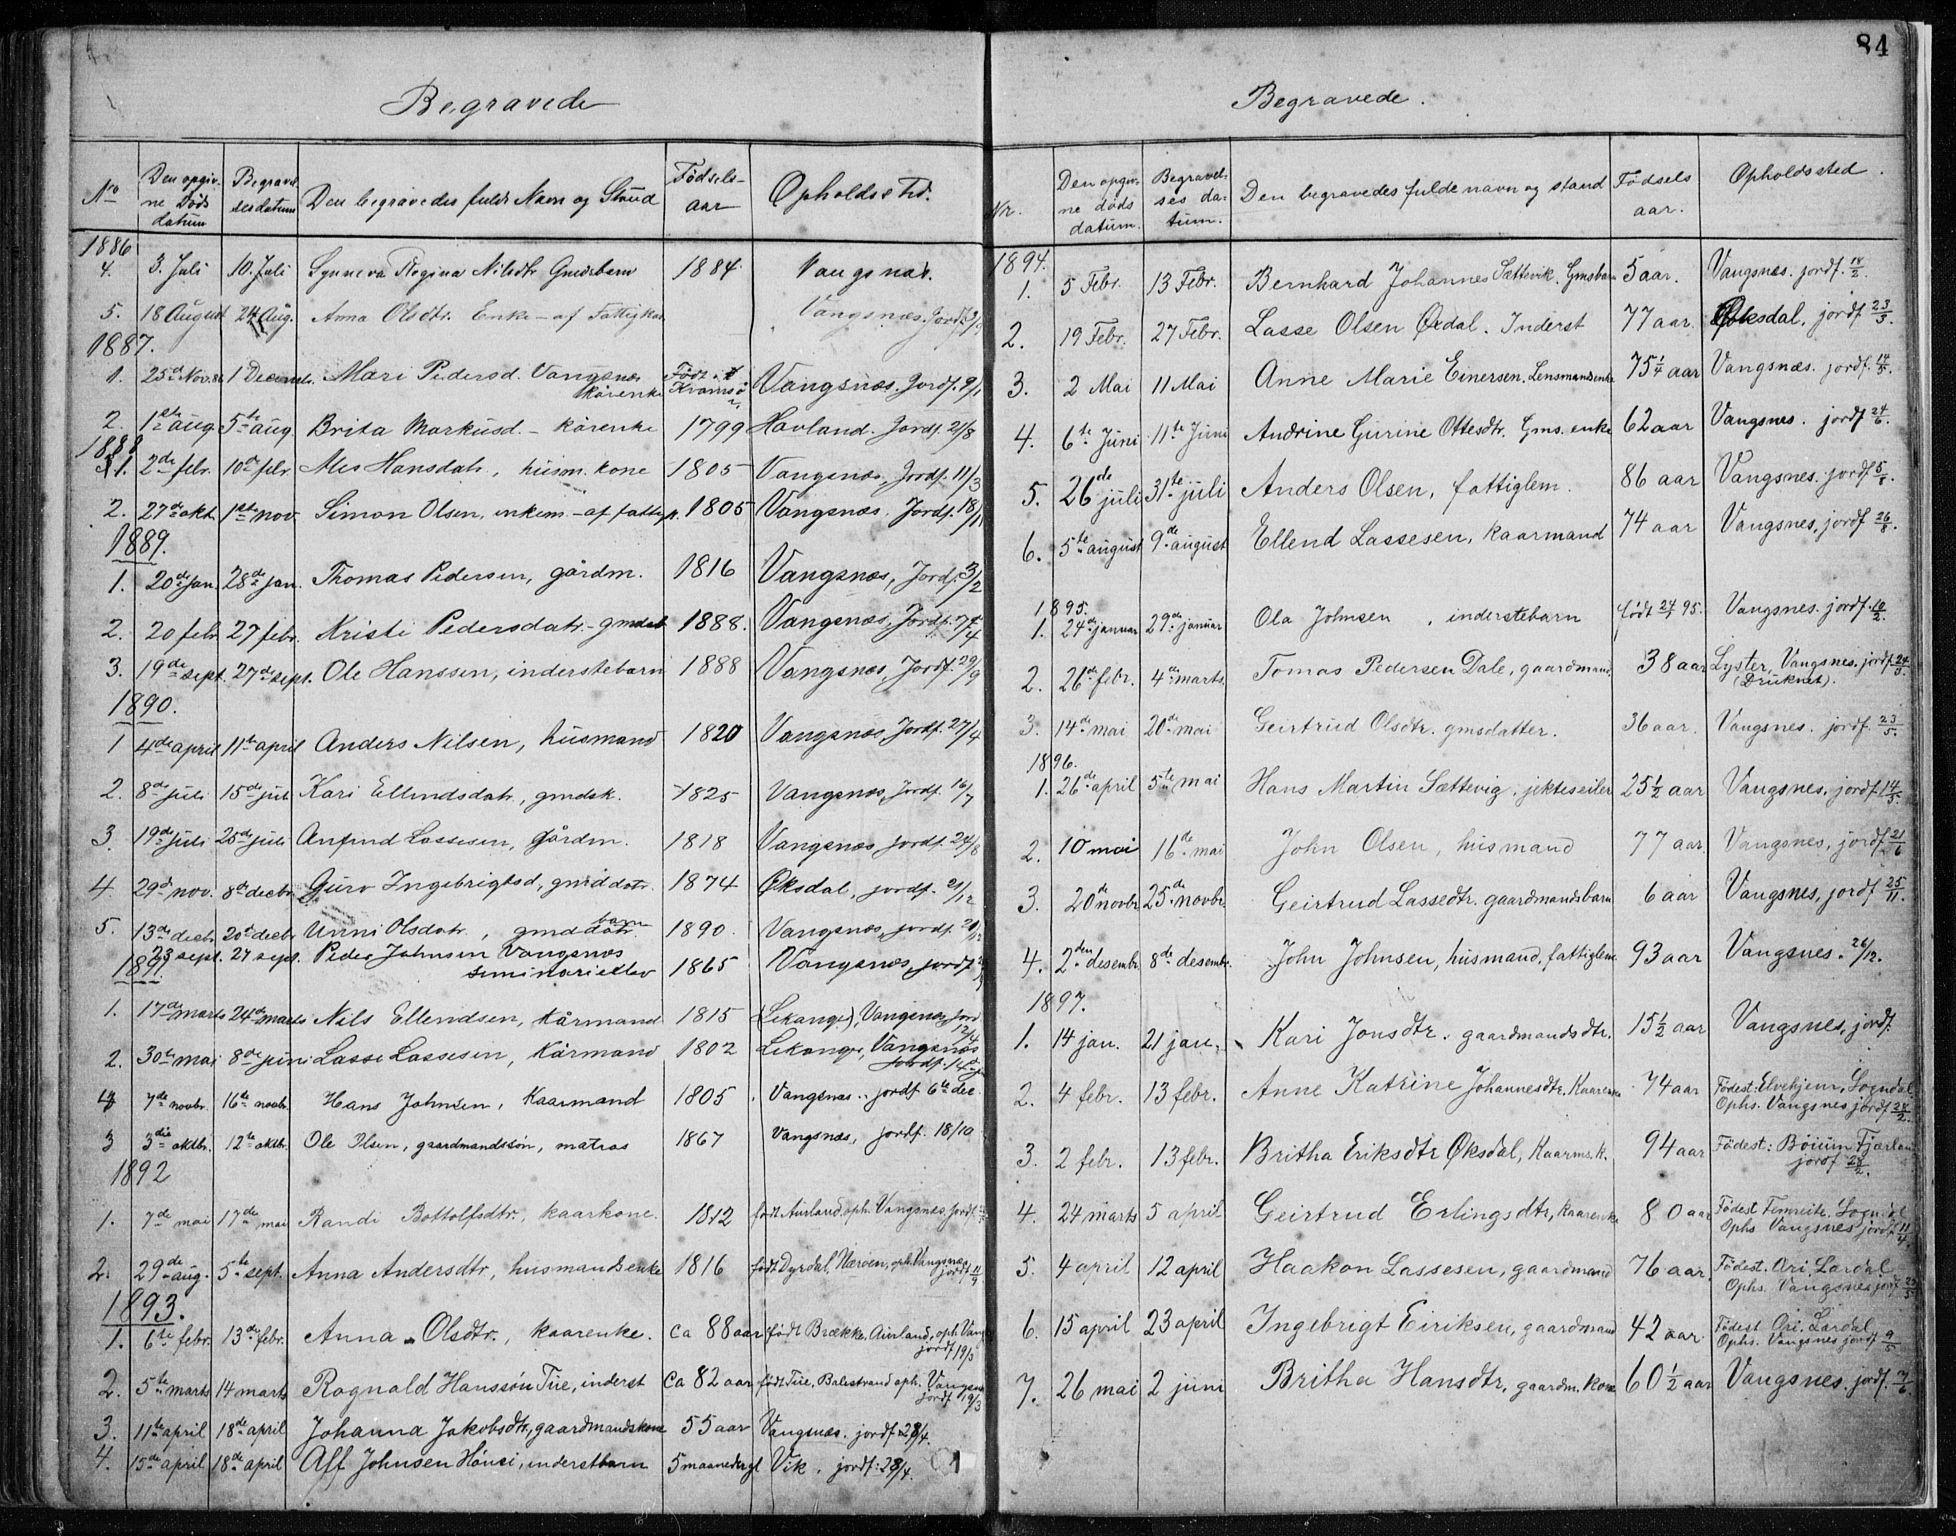 84
Begravede
No
Den opgivne Döds datum
Begravelsesdatum
Den begravedes fulde Navn og Stand
Födselsaar
Opholdssted.
1886
4. 3. Juli 10. Juli Synneva Regina Nilsdtr Gmdsbarn 1884. Vangsnæs.
5. 18 August 24 Aug. Anna Olsdtr. Enke - af Fattigkas Vangsnæs. Jordf.
1887.
1. 25de Nov. 86 1 Decemb. Mari Pedersd. Vangsnæs kårenke Födt Kvamsö Vangsnæs. Jordf. 9/1
2. 1ste aug. 5te aug. Brita Markusd. - kårenke 1799 Hovland. Jordf. 21/8
1888
1. 2de febr. 10de febr. Mes Hansdatr., husm. kone 1805 Vangsnæs, Jordf. 11/3
2. 27de okt. 1ste nov. Simon Olsen, enkem. - af fattigk. 1805 Vangsnæs. Jordf. 18/11
1889.
1. 20de jan. 28de jan. Thomas Pedersen, gårdm. 1816 Vangsnæs, Jordf. 3/2
2. 20 febr. 27 febr. Kristi Pedersdatr. - gmdsb 1888. Vangsnæs, Jordf. 7/4
3. 19de sept. 27de sept. Ole Hanssen, inderstebarn 1888 Vangsnæs, Jordf. 29/9
1890.
1 4de april 11te april Anders Nilsen, husmand 1820 Vangsnæs Jordf. 27/4
2. 8de juli 15de juli Kari Ellendsdatr., gmdsk. 1825 Vangsnæs, Jordf. 16/7
3. 19de juli 25de juli Anfind Lassesen, Gårdm. 1818 Vangsnæs, Jordf. 24/8
4. 29de nov. 8de decbr. Guro Ingebrigtsd, gmddatr. 1874 Øksdal, jordf. 21/12
5. 13de decbr. 20de decbr. Unni Olsdatr, gmd barn 1890. Vangsnæs, jordf.
23 sept. 27 sept. Peder Johnsen Vangsnæs seminarielev 1865 Vangsnæs, jordf.
1891
1. 17de marts 24de marts Nils Ellendsen, Kårmand 1815 (Lekanger), Vangsnæs, jord 12/4
2. 30te mai 8de juni Lasse Lassesen, Kårmand 1802 Lekanger, Vangsnæs Jordf. 14
4 7de novbr. 16te novbr. Hans Johnsen, Kaarmand 1805. Vangsnæs. jordf 6te dec.
3 3die oktbr. 12te oktbr. Ole Olsen, gaardmandssön, matros 1867 Vangsnæs, jordf. 18/10
1892
1. 7de mai 17de mai Randi Bottolfsdtr., kaarkone. 1812 født Aurland, oph. Vangsnæs. jordf.
2. 29de aug. 5te sept. Anna Andersdtr, husmandsenke 1816 født Dyrdal, Næröen, oph. Vangsnæs jordf. 11/9
1893.
1. 6te febr. 13de febr. Anna Olsdtr., kaarenke. ca 88 aar født Brække, Aurland, oph. Vang jordf 19/3
2. 5te marts 14 marts Ragnald Hanssön Tue, inderst ca 82 aar født Tue, Balestrand oph. Vangsn jordf 19/3
3. 11te april 18de april Johanna Jakobsdtr, gaardmandskone 55 aar Vangsnæs. jordf. 28/4.
4. 15de april 18de april Alf Johnsen Hönsi, inderstbarn 5 maaneder gl Vik. jordf: 28/4.
Begravede.
Nr.
Den opgivne döds datum.
Begravelses datum.
Den begravedes fulde navn og stand
Födsels aar.
Opholdssted.
1894.
1. 5 Febr. 13 Febr. Bernhard Johannes Sættevik. Gmsbarn 5 aar. Vangsnes. jordf. 18/2.
2. 19 Febr. 27 Febr. Lasse Olsen Øxdal. Inderst 77 aar. Øksdal, jordf. 23/3.
3. 2 Mai 11 Mai Anne Marie Einersen. Lensmandsenke 75 1/4 aar Vangsnæs. jordf. 14/5.
4. 6te Juni 11te Juni Andrine Gurine Ottesdtr. Gms. enke 62 aar Vangsnes. jordf 24/6.
5. 26de juli 31te juli Anders Olsen, fattiglem. 86 aar Vangsnes. jordf 5/8.
6. 5te august 9de august Ellend Lassesen, kaarmand 74 aar Vangsnes, jordf 26/8.
1895.
1. 24de januar 29de januar Ola Johnsen, inderstebarn født 24/1 95. Vangsnes. jordf. 10/2.
2. 26de febr. 4de marts Tomas Pedersen Dale, gaardmand. 38 aar Lyster, Vangsnes. jordf. 24/3. (Druknet).
3. 14de mai 20de mai Geirtrud Olsdtr. gmsdatter. 36 aar. Vangsnes. jordf. 23/5.
1896.
1. 26de april 5te mai Hans Martin Sættevig, jekteseiler 25 1/2 aar Vangsnes, jordf. 14/5.
2. 10 mai 16de mai John Olsen, husmand 77 aar. Vangsnes, jordf 21/6
3. 20de novbr. 25de novbr. Geirtrud Lassedtr. gaardmandsbarn 6 aar Vangsnes, jordf 25/11.
4. 2den desembr. 8de desembr. John Johnsen, husmand, fattiglem 93 aar Vangsnes. 26/12.
1897.
1. 14 jan. 21 jan. Kari Jonsdtr. gaardmandsdtr. 15 1/2 aar Vangsnes, jordf.
2. 4 febr. 13 febr. Anne Katrine Johannesdtr. Kaarenke 74 aar Födest: Elvehjem, Sogndal. Ophs. Vangsnes jordf 24/2.
3. 2 febr. 13 febr. Britha Eriksdtr Øksdal, Kaarms. k. 94 aar Födest: Böium Fjærland jordf 28/2.
4. 24 marts 5 april Geirtrud Erlingsdtr, kaarenke 80 aar Födest Fimreite. Sogndal Ophs Vangsnes jordf 11/4.
5. 4 april 12 april Haakon Lassesen, gaardmand 76 aar. Födest. Ori, Lærdal Ophs. Vangsnes jordf 23/5
6. 15 april 23 april Ingebrigt Eiriksen, gaardmand 42 aar. Födest Ori. Lærdal Ophs. Vangsnes jordf 9/5.
7. 26 mai 2 juni Britha Hansdtr, gaardm. kone 60 1/2 aar Vangsnes. jordf. 7/6.